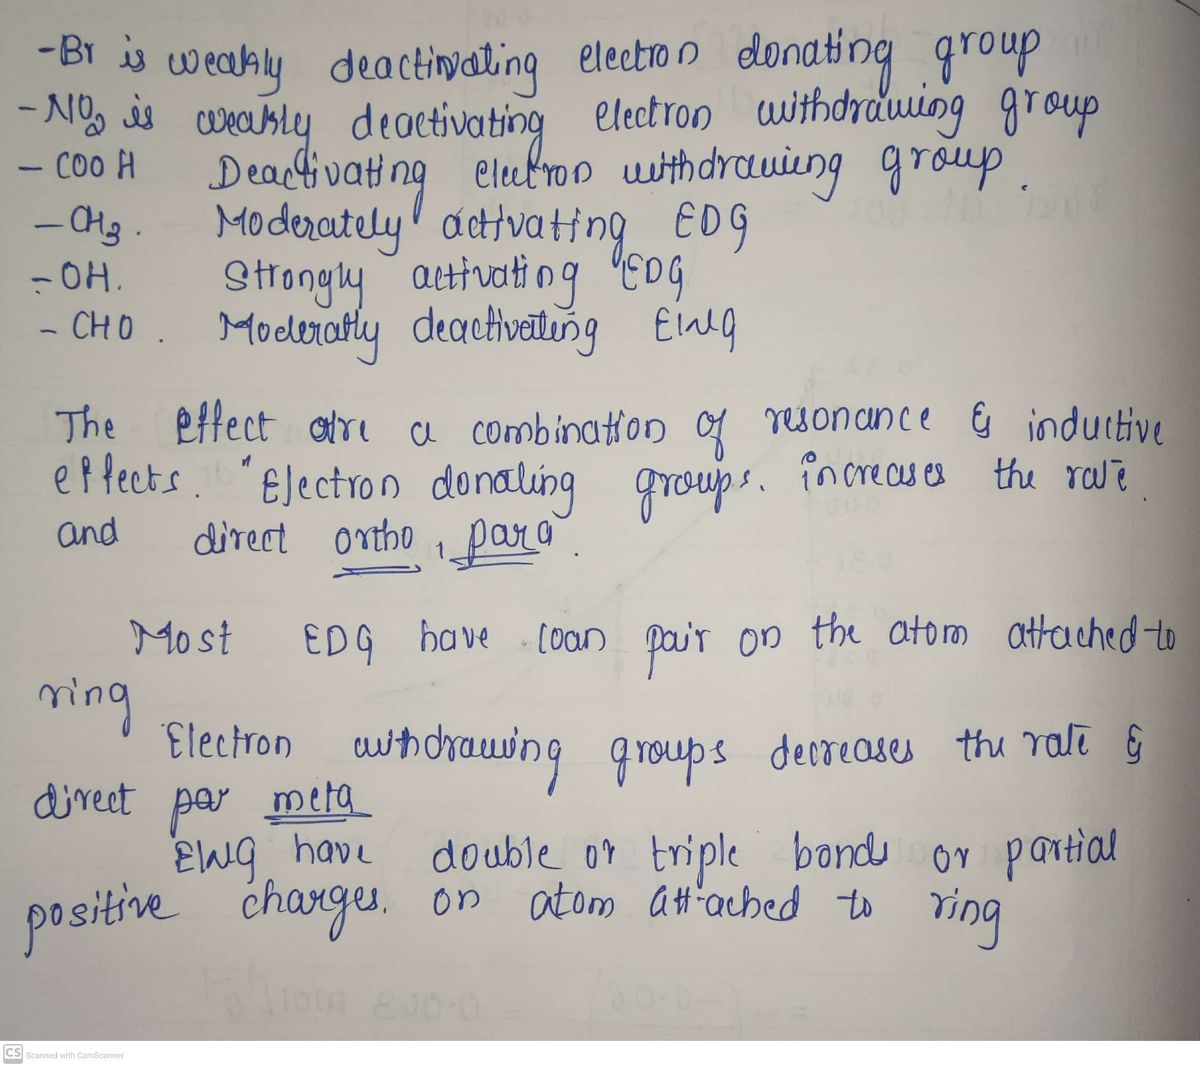 -Br is weakly deactivating electron donating group
-NO2 is weakly deactivating electron withdrawing group
- COOH Deactivating electron withdrawing group.
- CH3. Moderately activating EDG
- OH. Strongly activating EDG
- CHO. Moderatly deactivateing EWG
The effect are a combination of resonance & inductive
effects. "Electron donating groups. increases the rate.
and direct ortho, para.
Most EDG have loan pair on the atom attached to
ring
Electron withdrawing groups decreases the rate &
direct par meta
EWG have double or triple bonds or partial
positive charges. on atom attached to ring
CS Scanned with CamScanner